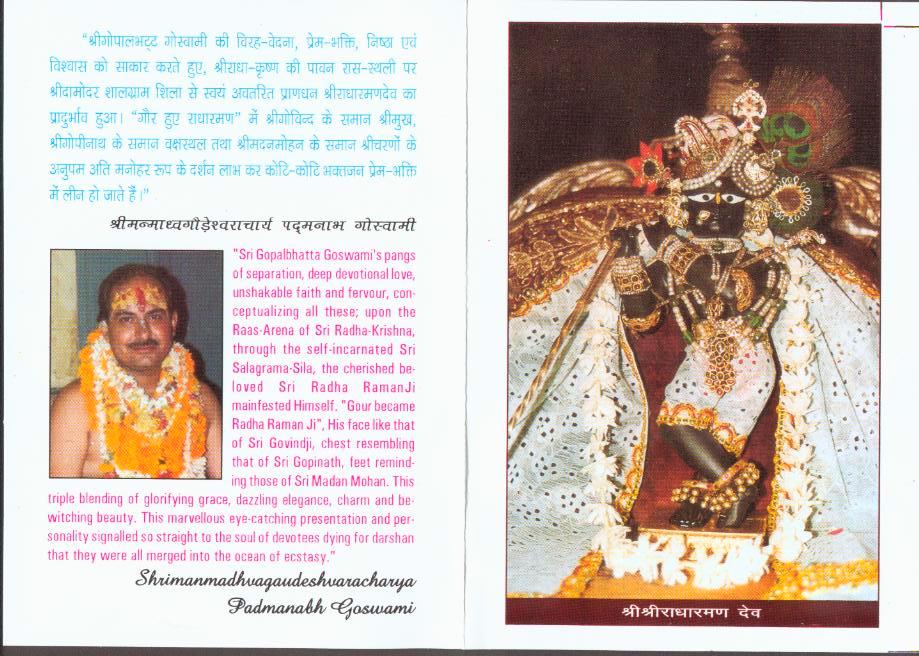 “श्रीगोपालभट्ट गोस्वामी की विरह-वेदना, प्रेम-भक्ति, निष्ठा एवं
विश्वास को साकार करते हुए, श्रीराधा-कृष्ण की पावन रास-स्थली पर
श्रीदामोदर शालग्राम शिला से स्वयं अवतरित प्राणधन श्रीराधारमणदेव का
प्रादुर्भाव हुआ। “गौर हुए राधारमण” में श्रीगोविन्द के समान श्रीमुख,
श्रीगोपीनाथ के समान वक्षस्थल तथा श्रीमदनमोहन के समान श्रीचरणों के
अनुपम अति मनोहर रूप के दर्शन लाभ कर कोटि-कोटि भक्तजन प्रेम-भक्ति
में लीन हो जाते हैं।”
श्रीमन्माध्वगौड़ेश्वराचार्य पद्मनाभ गोस्वामी
"Sri Gopalbhatta Goswami's pangs
of separation, deep devotional love,
unshakable faith and fervour, con-
ceptualizing all these; upon the
Raas-Arena of Sri Radha-Krishna,
through the self-incarnated Sri
Salagrama-Sila, the cherished be-
loved Sri Radha RamanJi
mainfested Himself. "Gour became
Radha Raman Ji", His face like that
of Sri Govindji, chest resembling
that of Sri Gopinath, feet remind-
ing those of Sri Madan Mohan. This
triple blending of glorifying grace, dazzling elegance, charm and be-
witching beauty. This marvellous eye-catching presentation and per-
sonality signalled so straight to the soul of devotees dying for darshan
that they were all merged into the ocean of ecstasy."
Shrimanmadhvagaudeshvaracharya
Padmanabh Goswami
श्रीश्रीराधारमण देव